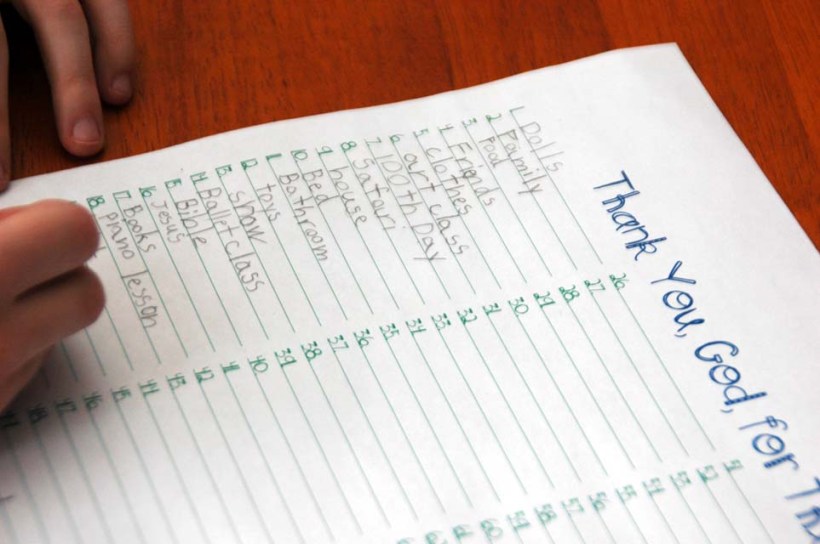 Thank You, God, for Th
1 Dolls
2 Family
3 Food
4 Friends
5 clothes
6 art class
7 100th Day
8 Safari
9 house
10 Bed
11 Bathroom
12 toys
13 show
14 Ballet class
15 Bible
16 Jesus
17 Books
18 piano lesson
26
27
28
29
30
31
32
33
34
35
36
37
38
39
40
41
42
43
44
45
46
47
48
51
52
53
54
55
56
57
58
59
60